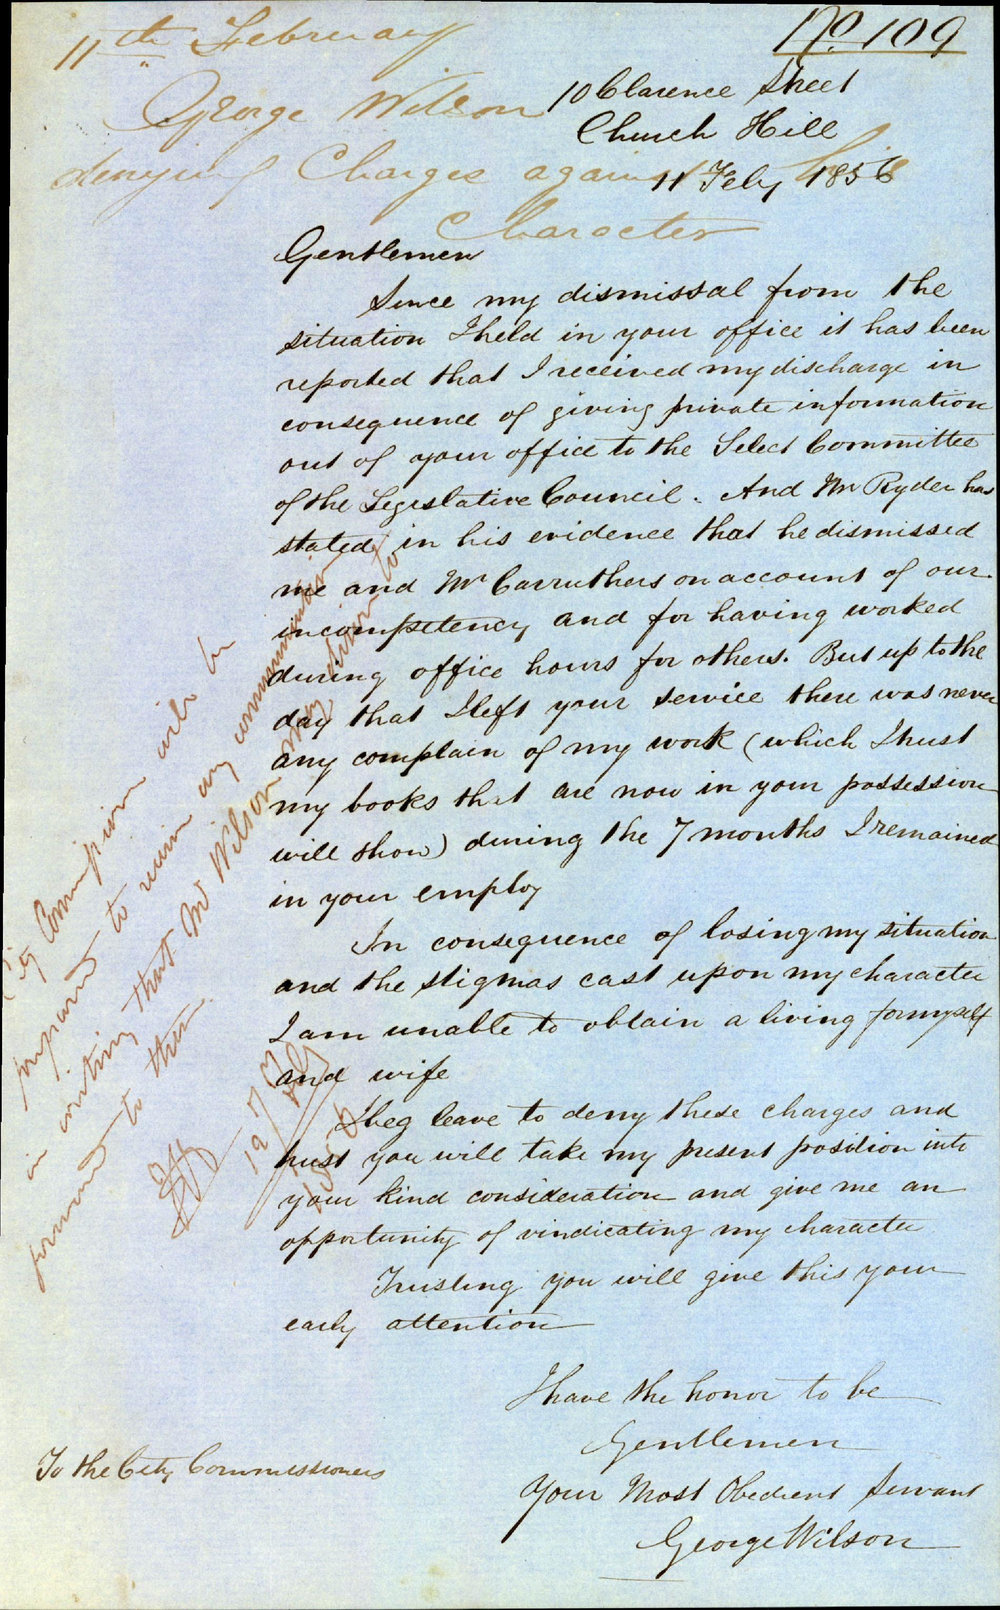 No 109
11th February
George Wilson
denying Charges against his
Character
10 Clarence Street
Church Hill
11 Feby 1856
Gentlemen
Since my dismissal from the
situation I held in your office it has been
reported that I received my discharge in
consequence of giving private information
out of your office to the Select Committee
of the Legislative Council. And Mr Ryder has
stated in his evidence that he dismissed
me and Mr Carruthers on account of our
incompetency and for having worked
during office hours for others. But up to the
day that I left your service there was never
any complain of my work (which I trust
my books that are now in your possession
will show) during the 7 months I remained
in your employ
In consequence of losing my situation
and the stigmas cast upon my character
I am unable to obtain a living for myself
and wife
I beg leave to deny these charges and
trust you will take my present position into
your kind consideration and give me an
opportunity of vindicating my character
Trusting you will give this your
early attention
I have the honor to be
Gentlemen
Your Most Obedient Servant
George Wilson
To the City Commissioners
City Commission will be
prepared to receive any communication
in writing that Mr Wilson may desire to
forward to them.
12 Feby
1856